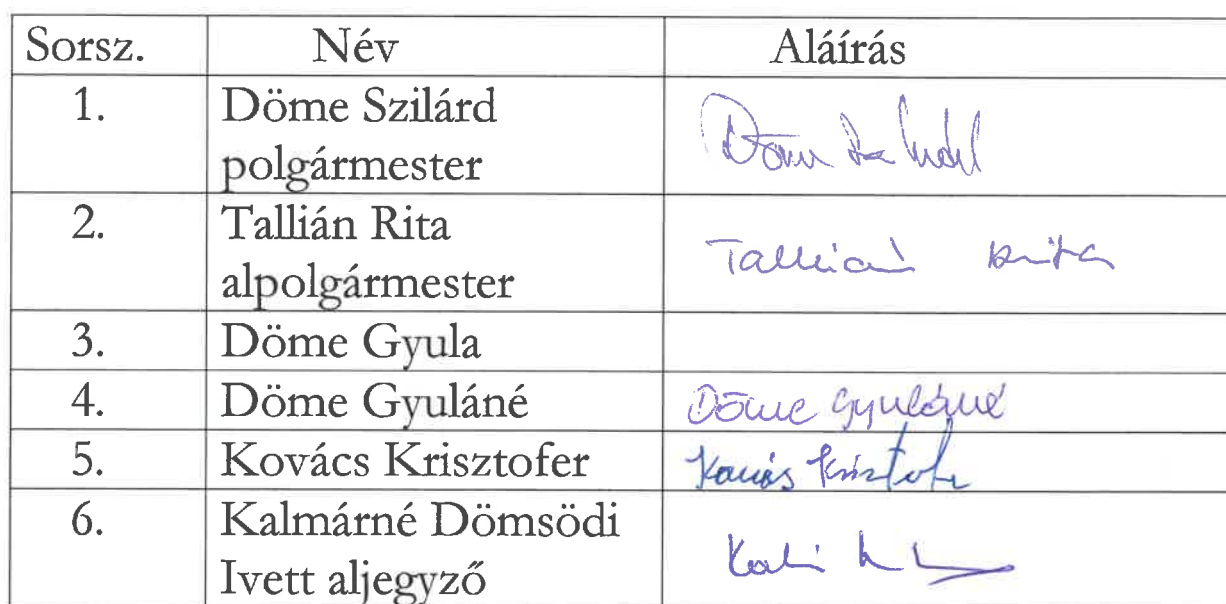 Sorsz. Név Aláírás
1. Döme Szilárd
polgármester
Döme Szilárd
2. Tallián Rita
alpolgármester
Tallián Rita
3. Döme Gyula
4. Döme Gyuláné Döme Gyuláné
5. Kovács Krisztofer Kovács Krisztofer
6. Kalmárné Dömsödi
Ivett aljegyző